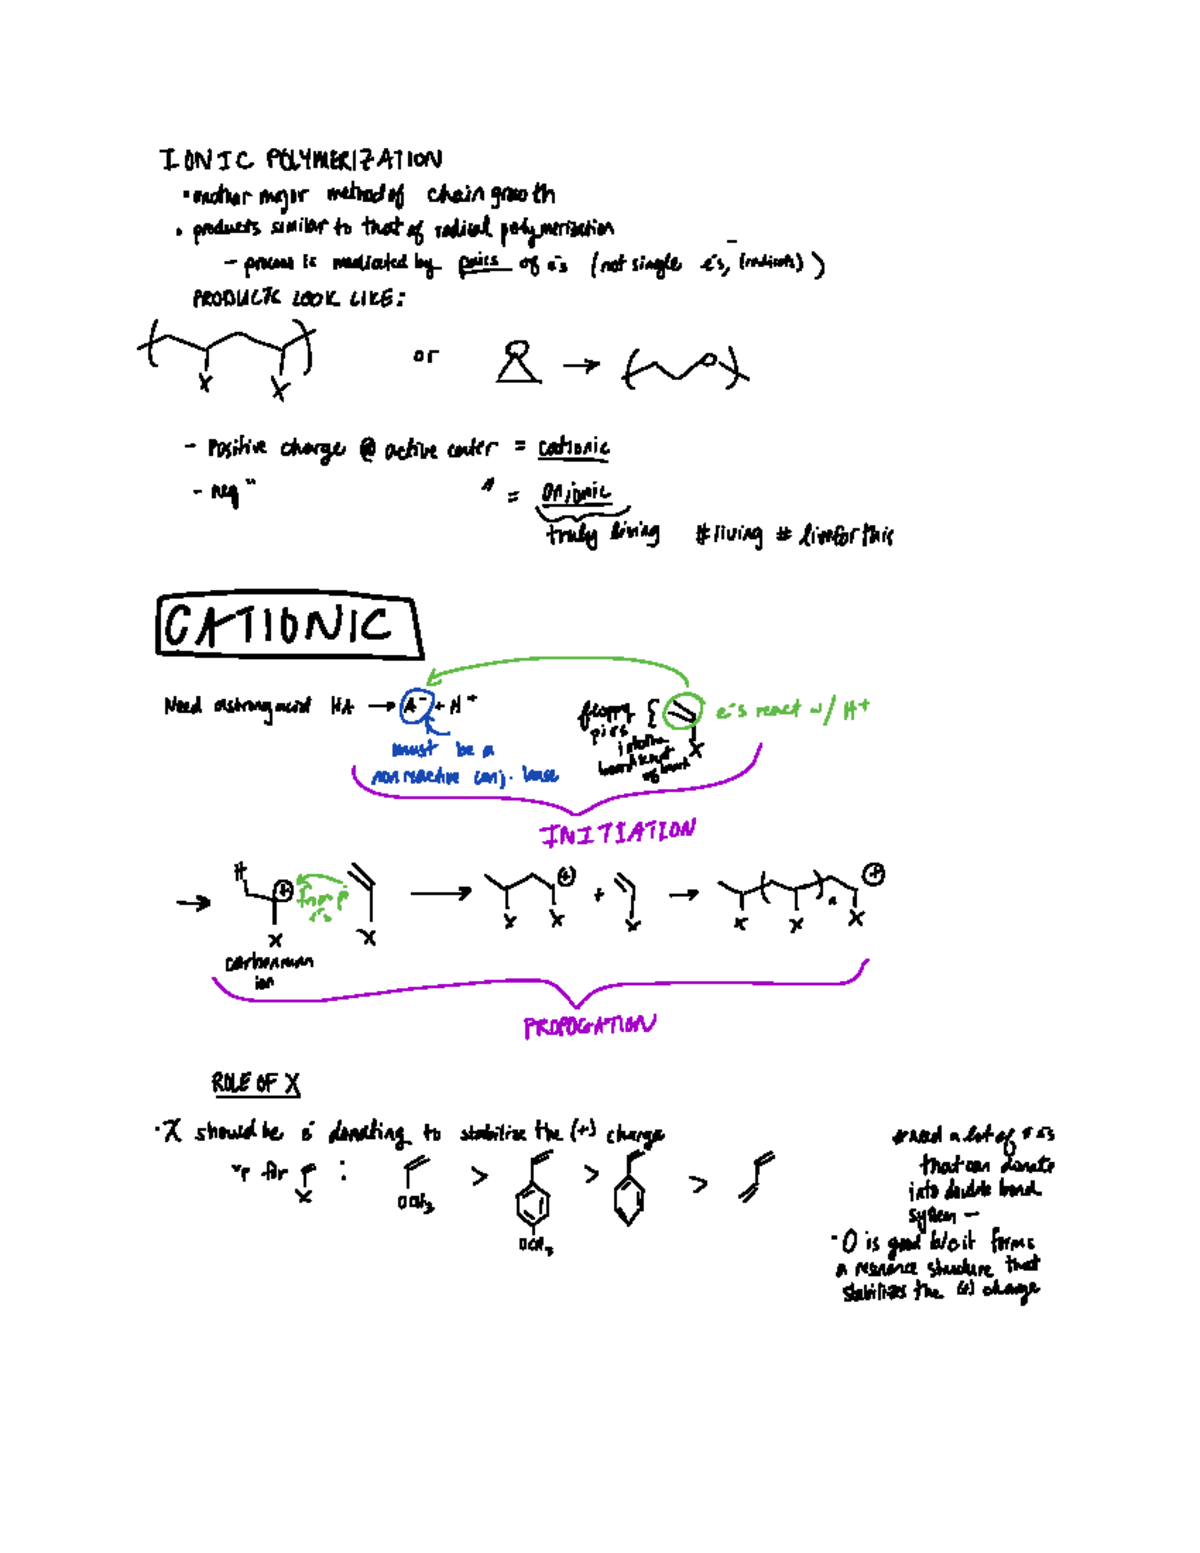 IONIC POLYMERIZATION
• another major method of chain growth
• products similar to that of radical polymerization
- process is mediated by pairs of e⁻s (not single e⁻s, (radicals))
PRODUCTS LOOK LIKE:
X X or O → O
- Positive charge @ active center = cationic
- neg " " = anionic
truly living #living #liveforthis
CATIONIC
Need a strong acid HA → A⁻ + H⁺
floppy pi e⁻s
X
e⁻s react w/ H⁺
must be a
non reactive conj. base
INITIATION
→ H ⊕ X from X → X X ⊕ + X → X X n X ⊕
carbenium
ion
PROPOGATION
ROLE OF X
• X should be e⁻ donating to stabilize the (+) charge
rp for X : OCH₃ > OCH₃ > >
*need a lot of π e⁻s
that can donate
into double bond
system —
• O is good b/c it forms
a resonance structure that
stabilizes the (+) charge